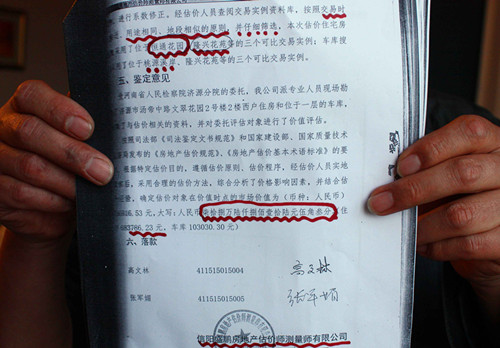 进行系数修正。经估价人员查阅交易实例资料库，按照交易时
用途相同、地段相似的原则，并仔细筛选，本次估价住宅房
用了位于 花园、隆兴花苑等的三个可比交易实例；车库搜
用了位于桃源溪岸、
五、鉴定意见
受河南省人民检察院济源分院的委托，我公司派专业人员现场勘
济源市汤帝中路文翠花园2号楼2楼西户住房和位于一层的车库，
了与估价相关的资料，并对委托评估对象进行了价值评估。
按照司法部《司法鉴定文书规范》和国家建设部、国家质量技术
局颁发的《房地产估价规范》、《房地产估价基本术语标准》的要
据特定估价目的，遵循估价原则、估价程序，经估价人员实地
察，采用合理的估价方法，综合分析了价格影响因素，并结合估
经验，确定估价对象在价值时点的市场价值为（币种：人民币）
6816.53元，大写：人民币柒拾捌万陆仟捌佰壹拾陆元伍角叁分（住
683786.23元，车库 103030.30元）
六、落款
高文林 411515015004 高文林
张军娟 411515015005 张军娟
信阳盛鹏房地产估价师测量师有限公司